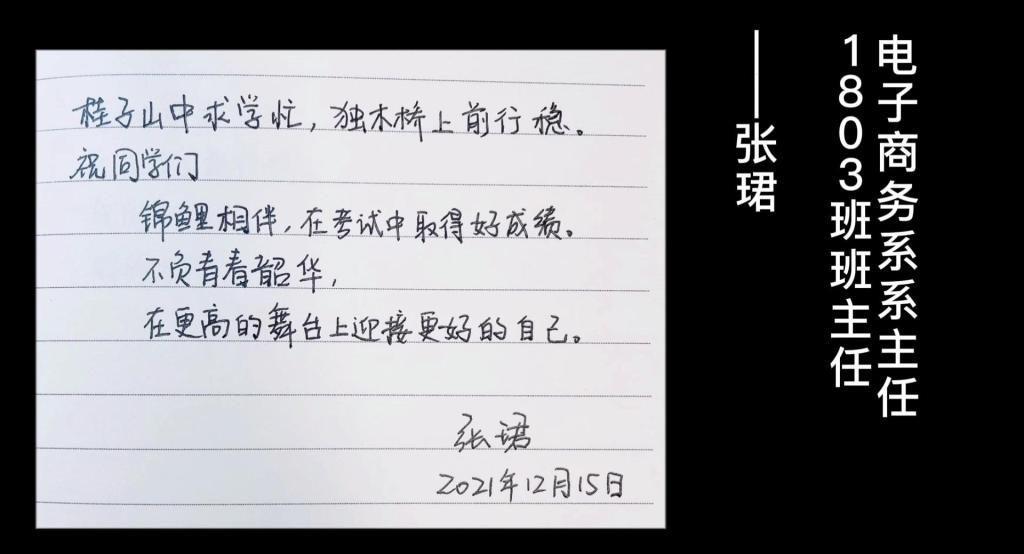 桂子山中求学忙，独木桥上前行稳。
祝同学们
锦鲤相伴，在考试中取得好成绩。
不负青春韶华，
在更高的舞台上迎接更好的自己。
张珺
2021年12月15日
电子商务系系主任
1803班班主任
——张珺